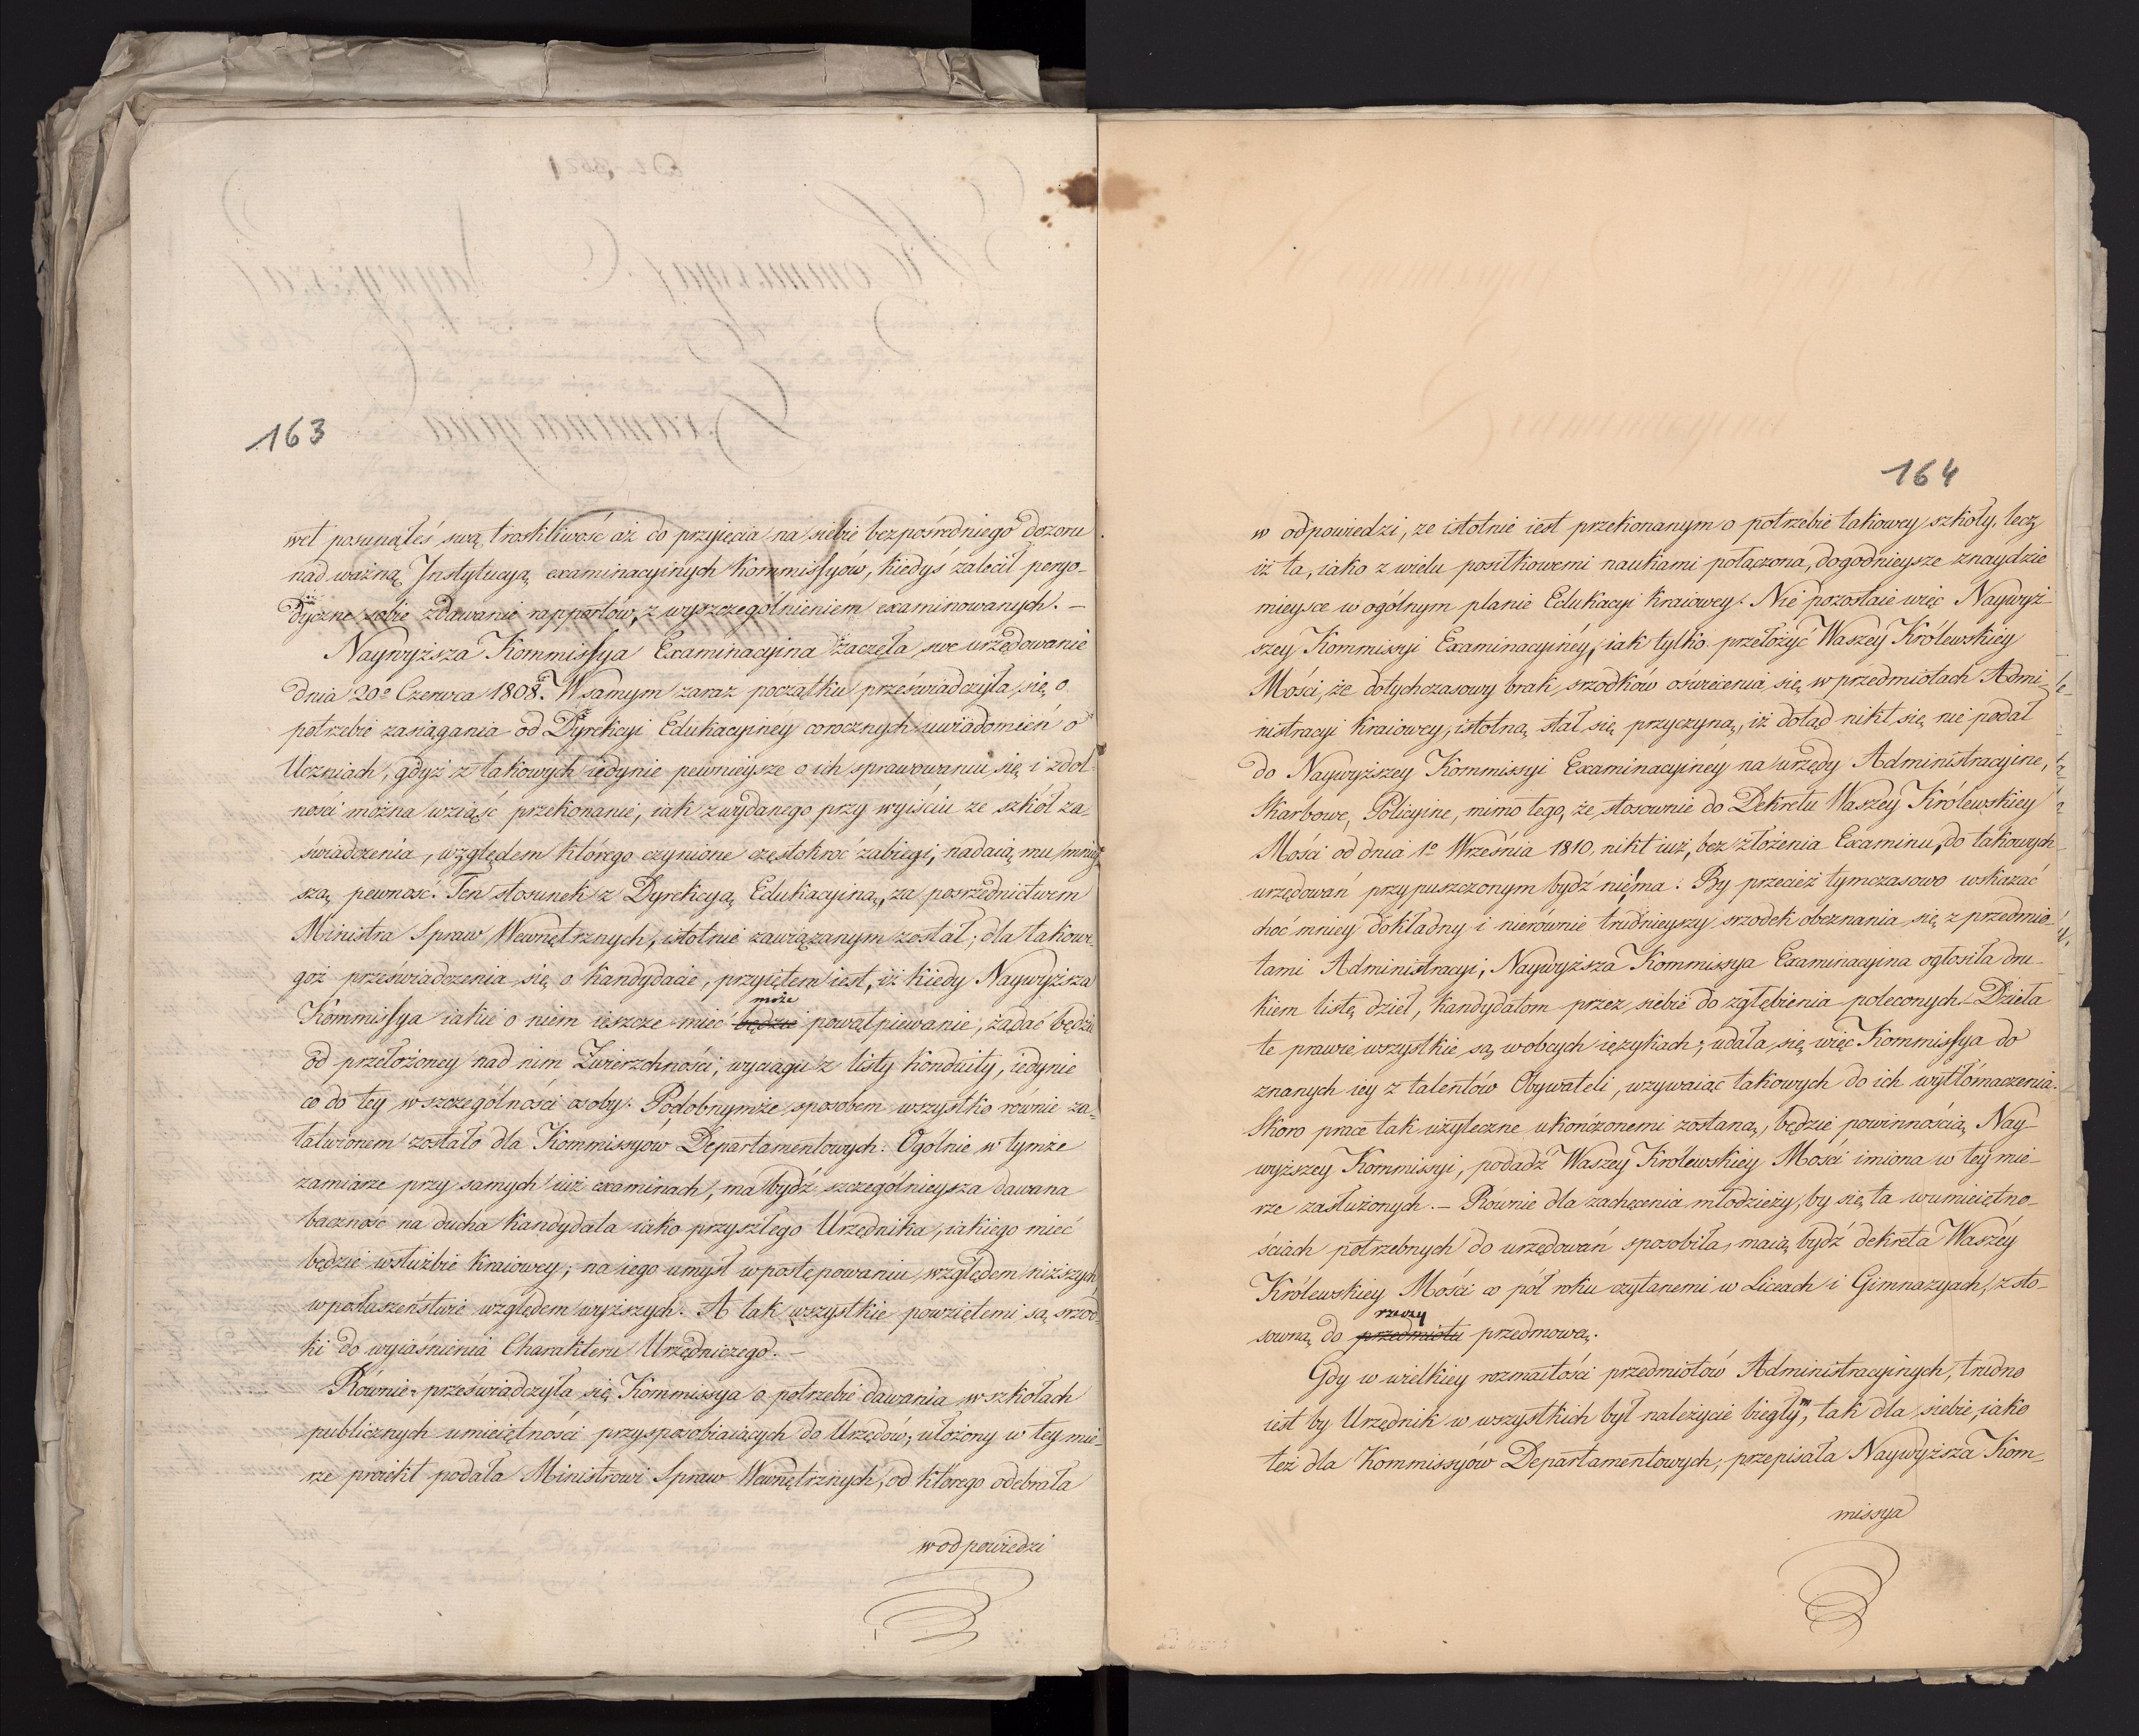 163
wet posunąłeś swą troskliwość aż do przyięcia na siebie bezpośredniego dozoru
nad ważną Instytucyą examinacyinych Kommissyów, kiedyś zalecił peryo-
dyczne sobie zdawanie rapportów, z wyszczególnieniem examinowanych. —
Naywyższa Kommissya Examinacyina zaczęła swe urzędowanie
dnia 20º Czerwca 1808. W samym zaraz początku przeświadczyła się o
potrzebie zasiągania od Dyrekcyi Edukacyiney corocznych uwiadomień o
Uczniach, gdyż z takowych iedynie pewnieysze o ich sprawowaniu się i zdol-
ności można wziąść przekonanie, iak z wydanego przy wyiściu ze szkół za-
świadczenia, względem którego czynione częstokroć zabiegi, nadaią mu mniey-
szą pewność. Ten stosunek z Dyrekcyą Edukacyiną, za pośrzednictwem
Ministra Spraw Wewnętrznych, istotnie zawiązanym został; dla takowe-
goż przeświadczenia się o Kandydacie, przyiętem iest, iż kiedy Naywyższa
Kommissya iakie o niem ieszcze mieć będzie może powątpiewanie, żądać będzie
od przełożoney nad nim Zwierzchności, wyciągu z listy konduity, iedynie
co do tey w szczególności osoby. Podobnymże sposobem wszystko równie za-
łatwionem zostało dla Kommissyów Departamentowych. Ogólnie w tymże
zamiarze przy samych iuż examinach, ma bydź szczególnieysza dawana
baczność na ducha Kandydata iako przyszłego Urzędnika, iakiego mieć
będzie w służbie Kraiowey; na iego umysł w postępowaniu względem niższych
w posłuszeństwie względem wyższych. A tak wszystkie powziętemi są srzod-
ki do wyiaśnienia Charakteru Urzędniczego. —
Równie przeświadczyła się Kommissya o potrzebie dawania w szkołach
publicznych umieiętności przysposobiaiących do Urzędów; ułożony w tey mie-
rze proiekt podała Ministrowi Spraw Wewnętrznych, od którego odebrała
w odpowiedzi
164
w odpowiedzi, że istotnie iest przekonanym o potrzebie takowey szkoły, lecz
iż ta, iako z wielu posiłkowemi naukami połączona, dogodnieysze znaydzie
mieysce w ogólnym planie Edukacyi Kraiowey. Nie pozostaie więc Naywyż-
szey Kommissyi Examinacyiney, iak tylko przełożyć Waszey Królewskiey
Mości, że dotychczasowy brak srzodków oświecenia się w przedmiotach Admi-
nistracyi Kraiowey, istotną stał się przyczyną, iż dotąd nikt się nie podał
do Naywyższey Kommissyi Examinacyiney na urzędy Administracyine,
Skarbowe, Policyine, mimo tego, że stosownie do Dekretu Waszey Królewskiey
Mości od dnia 1º Września 1810, nikt iuż, bez złożenia Examinu, do takowych
urzędowań przypuszczonym bydź nie ma. By przecież tymczasowo wskazać
choć mniey dokładny i nierównie trudnieyszy srzodek obeznania się z przedmio-
tami Administracyi, Naywyższa Kommissya Examinacyina ogłosiła dru-
kiem listę dzieł, Kandydatom przez siebie do zgłębienia poleconych. Dzieła
te prawie wszystkie są w obcych ięzykach; udała się więc Kommissya do
znanych iey z talentów Obywateli, wzywaiąc takowych do ich wytłómaczenia.
Skoro prace tak użyteczne ukończonemi zostaną, będzie powinnością Nay-
wyższey Kommissyi, podadź Waszey Królewskiey Mości imiona w tey mie-
rze zasłużonych. — Równie dla zachęcenia młodzieży, by się ta w umieiętno-
ściach potrzebnych do urzędowań sposobiła, maią bydź dekreta Waszey
Królewskiey Mości co pół roku czytanemi w Liceach i Gimnazyach, z sto-
sowną do przedmiotu rzeczy przedmową.
Gdy w wielkiey rozmaitości przedmiotów Administracyinych, trudno
iest by Urzędnik w wszystkich był należycie biegłym, tak dla siebie, iako
też dla Kommissyów Departamentowych, przepisała Naywyższa Kom-
missya